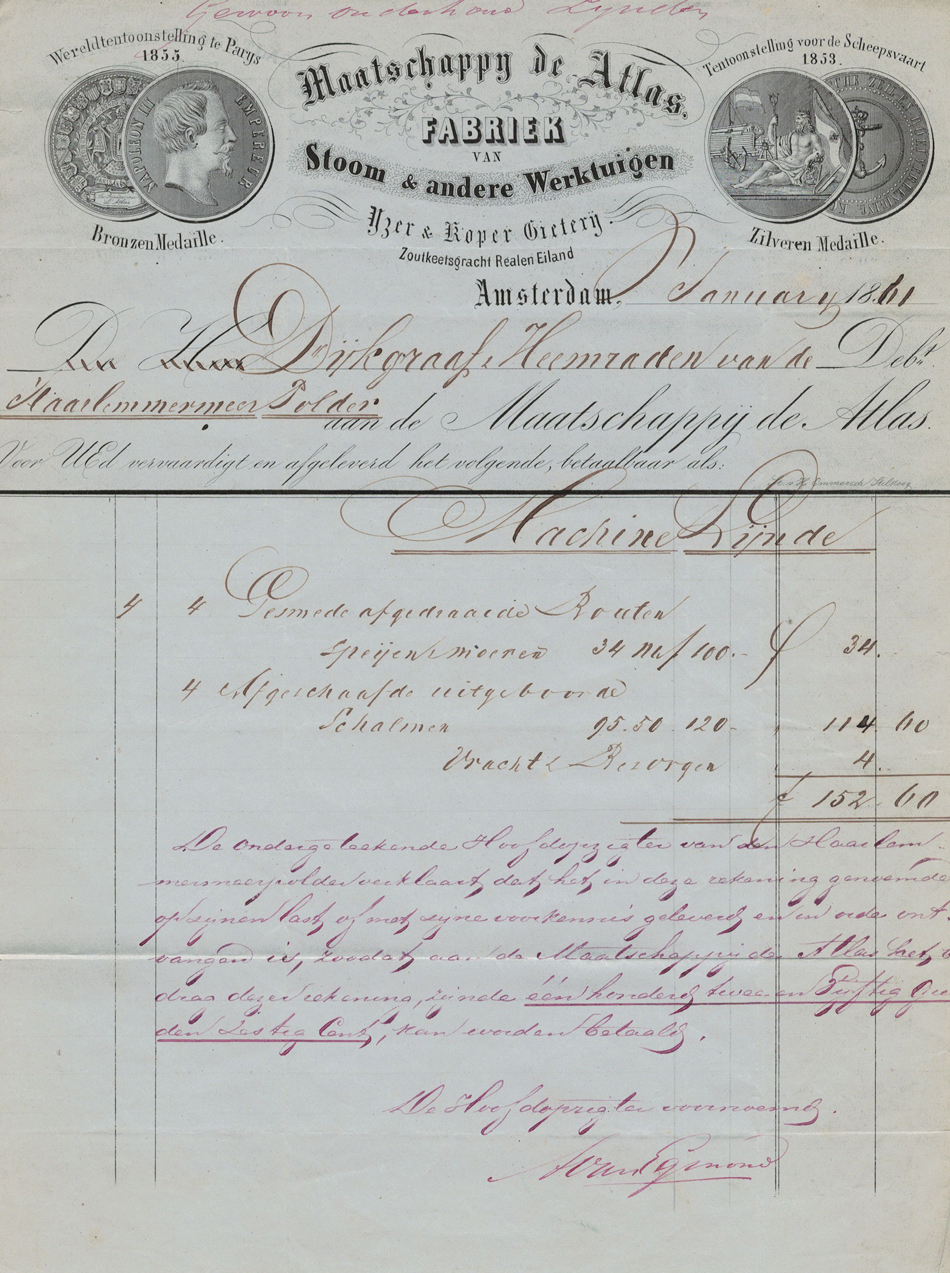 Gewoon onderhoud Lynden
Wereldtentoonstelling te Parys
1855.
NAPOLEON III EMPEREUR
Bronzen Medaille.
Maatschappy de Atlas.
FABRIEK
VAN
Stoom & andere Werktuigen
Yzer & Koper Gietery.
Zoutkeetsgracht Realen Eiland
Tentoonstelling voor de Scheepsvaart
1853.
Zilveren Medaille.
Amsterdam, January 1861
Den Heer Dijkgraaf & Heemraden van de Debt.
Haarlemmermeer Polder
aan de Maatschappij de Atlas.
Voor UEd vervaardigt en afgeleverd het volgende, betaalbaar als:
Machine Lijnde
4 4 Gesmede afgedraaide Bouten
speijen & moeren 34 f 100.- f 34.
4 Afgeschaafde uitgeboorde
Schalmen 95.50 120- " 114 60
Vracht & Bezorgen 4.
f 152 60
De ondergeteekende Hoofdopzigter van den Haarlem-
mermeerpolder verklaart dat het in deze rekening genoemde
op zijnen last of met zijne voorkennis geleverd en in orde ont-
vangen is, zoodat aan de Maatschappij de Atlas het be
drag dezer rekening, zijnde één honderd twee en Vijftig Gul
den Zestig Cent, kan worden betaald.
De Hoofdopzigter voornoemd.
A van Egmond